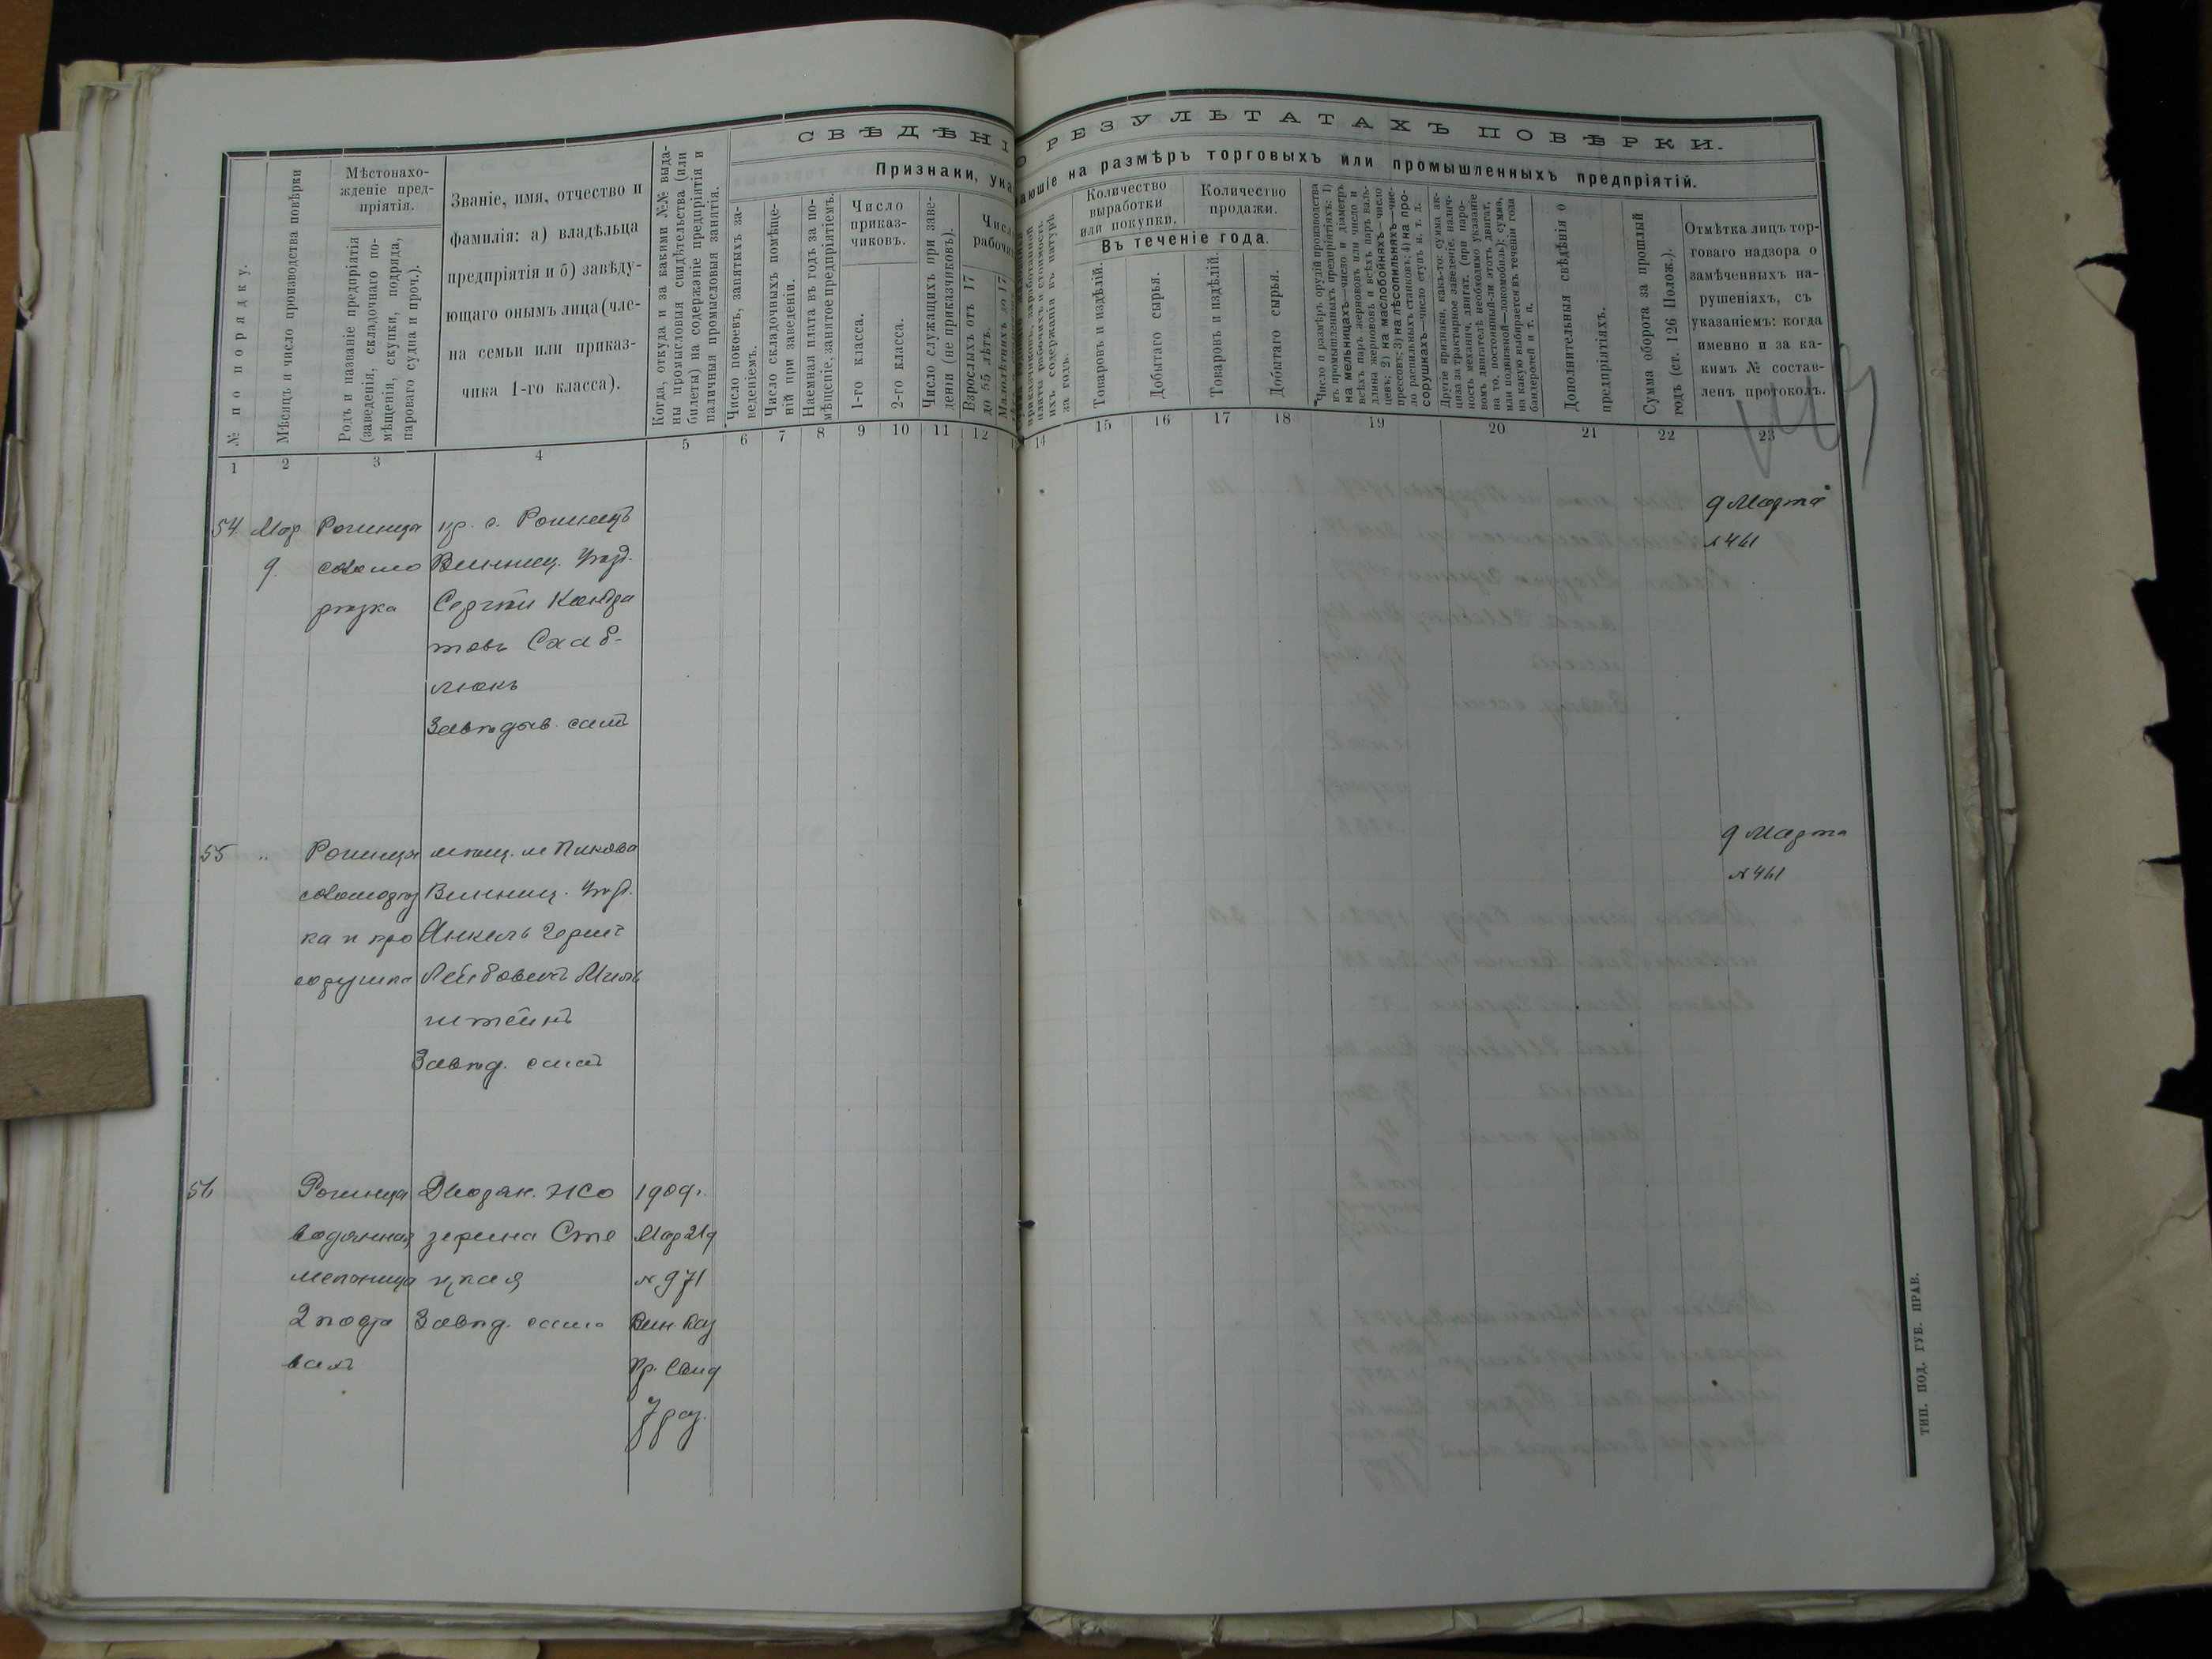 СВѢДѢНІ
О РЕЗУЛЬТАТАХЪ ПОВѢРКИ.
Признаки, ука
ающіе на размѣръ торговыхъ или промышленныхъ предпріятій.
№ по порядку.
Мѣсяцъ и число производства повѣрки
Мѣстонахо-
жденіе пред-
пріятія.
Родъ и названіе предпріятія
(заведенія, складочнаго по-
мѣщенія, скупки, подряда,
пароваго судна и проч.).
Званіе, имя, отчество и
фамилія: а) владѣльца
предпріятія и б) завѣду-
ющаго онымъ лица (чле-
на семьи или приказ-
чика 1-го класса).
Когда, откуда и за какими №№ выда-
ны промысловыя свидѣтельства (или
билеты) на содержаніе предпріятія и
наличныя промысловыя занятія.
Число покоевъ, занятыхъ за-
веденіемъ.
Число складочныхъ помѣще-
ній при заведеніи.
Наемная плата въ годъ за по-
мѣщеніе, занятое предпріятіемъ.
Число
приказ-
чиковъ.
1-го класса.
2-го класса.
Число служащихъ при заве-
деніи (не приказчиковъ).
Взрослыхъ отъ 17
до 55 лѣтъ.
Малолѣтнихъ до 17
за годъ.
Количество
выработки
или покупки.
Количество
продажи.
Въ теченіе года.
Товаровъ и издѣлій.
Добытаго сырья.
Товаровъ и издѣлій.
Добытаго сырья.
Число и размѣръ орудій производства
въ промышленныхъ предпріятіяхъ: 1)
на мельницахъ—число и діаметръ
всѣхъ паръ жернововъ или число и
длина жернововъ и всѣхъ паръ валь-
цевъ; 2) на маслобойняхъ—число
прессовъ; 3) на лѣсопильняхъ—чис-
ло распильныхъ станковъ; 4) на про-
сорушнахъ—число ступъ и. т. д.
Другіе признаки, какъ-то: сумма ак-
циза за трактирное заведеніе, налич-
ность механич. двигат. (при паро-
вомъ двигателѣ необходимо указаніе
на то, постоянный-ли этотъ двигат.
или подвижной—локомобиль); сумма,
на какую выбирается въ теченіи года
бандеролей и т. п.
Дополнительныя свѣдѣнія о
предпріятіяхъ.
Сумма оборота за прошлый
годъ (ст. 126 Полож.).
Отмѣтка лицъ тор-
говаго надзора о
замѣченныхъ на-
рушеніяхъ, съ
указаніемъ: когда
именно и за ка-
кимъ № состав-
ленъ протоколъ.
1 2 3 4 5 6 7 8 9 10 11 12 14 15 16 17 18 19 20 21 22 23
54. Мар
9.
Рогинца
соломо
рѣзка
кр. с. Рогинецъ
Винниц. Уѣзд.
Сергѣй Кондра
товъ Скаб-
люкъ
Завѣдыв. самъ
9 Марта
№ 461
55 "
Рогинца
соломорѣз
ка и про
сорушка
мѣщ. м Пикова
Винниц. Уѣзд.
Анкель Гершъ
Лейбовичъ Миль
штейнъ
Завѣд. самъ
9 Марта
№ 461
56
Рогинца
водянная
мельница
2 поста
вахъ
Дворян. Жо
зефина Сте
цкая
Завѣд. сама
1909г.
№ 971
Вин. Каз
Пр. Свид
7 раз.
ТИП. ПОД. ГУБ. ПРАВ.